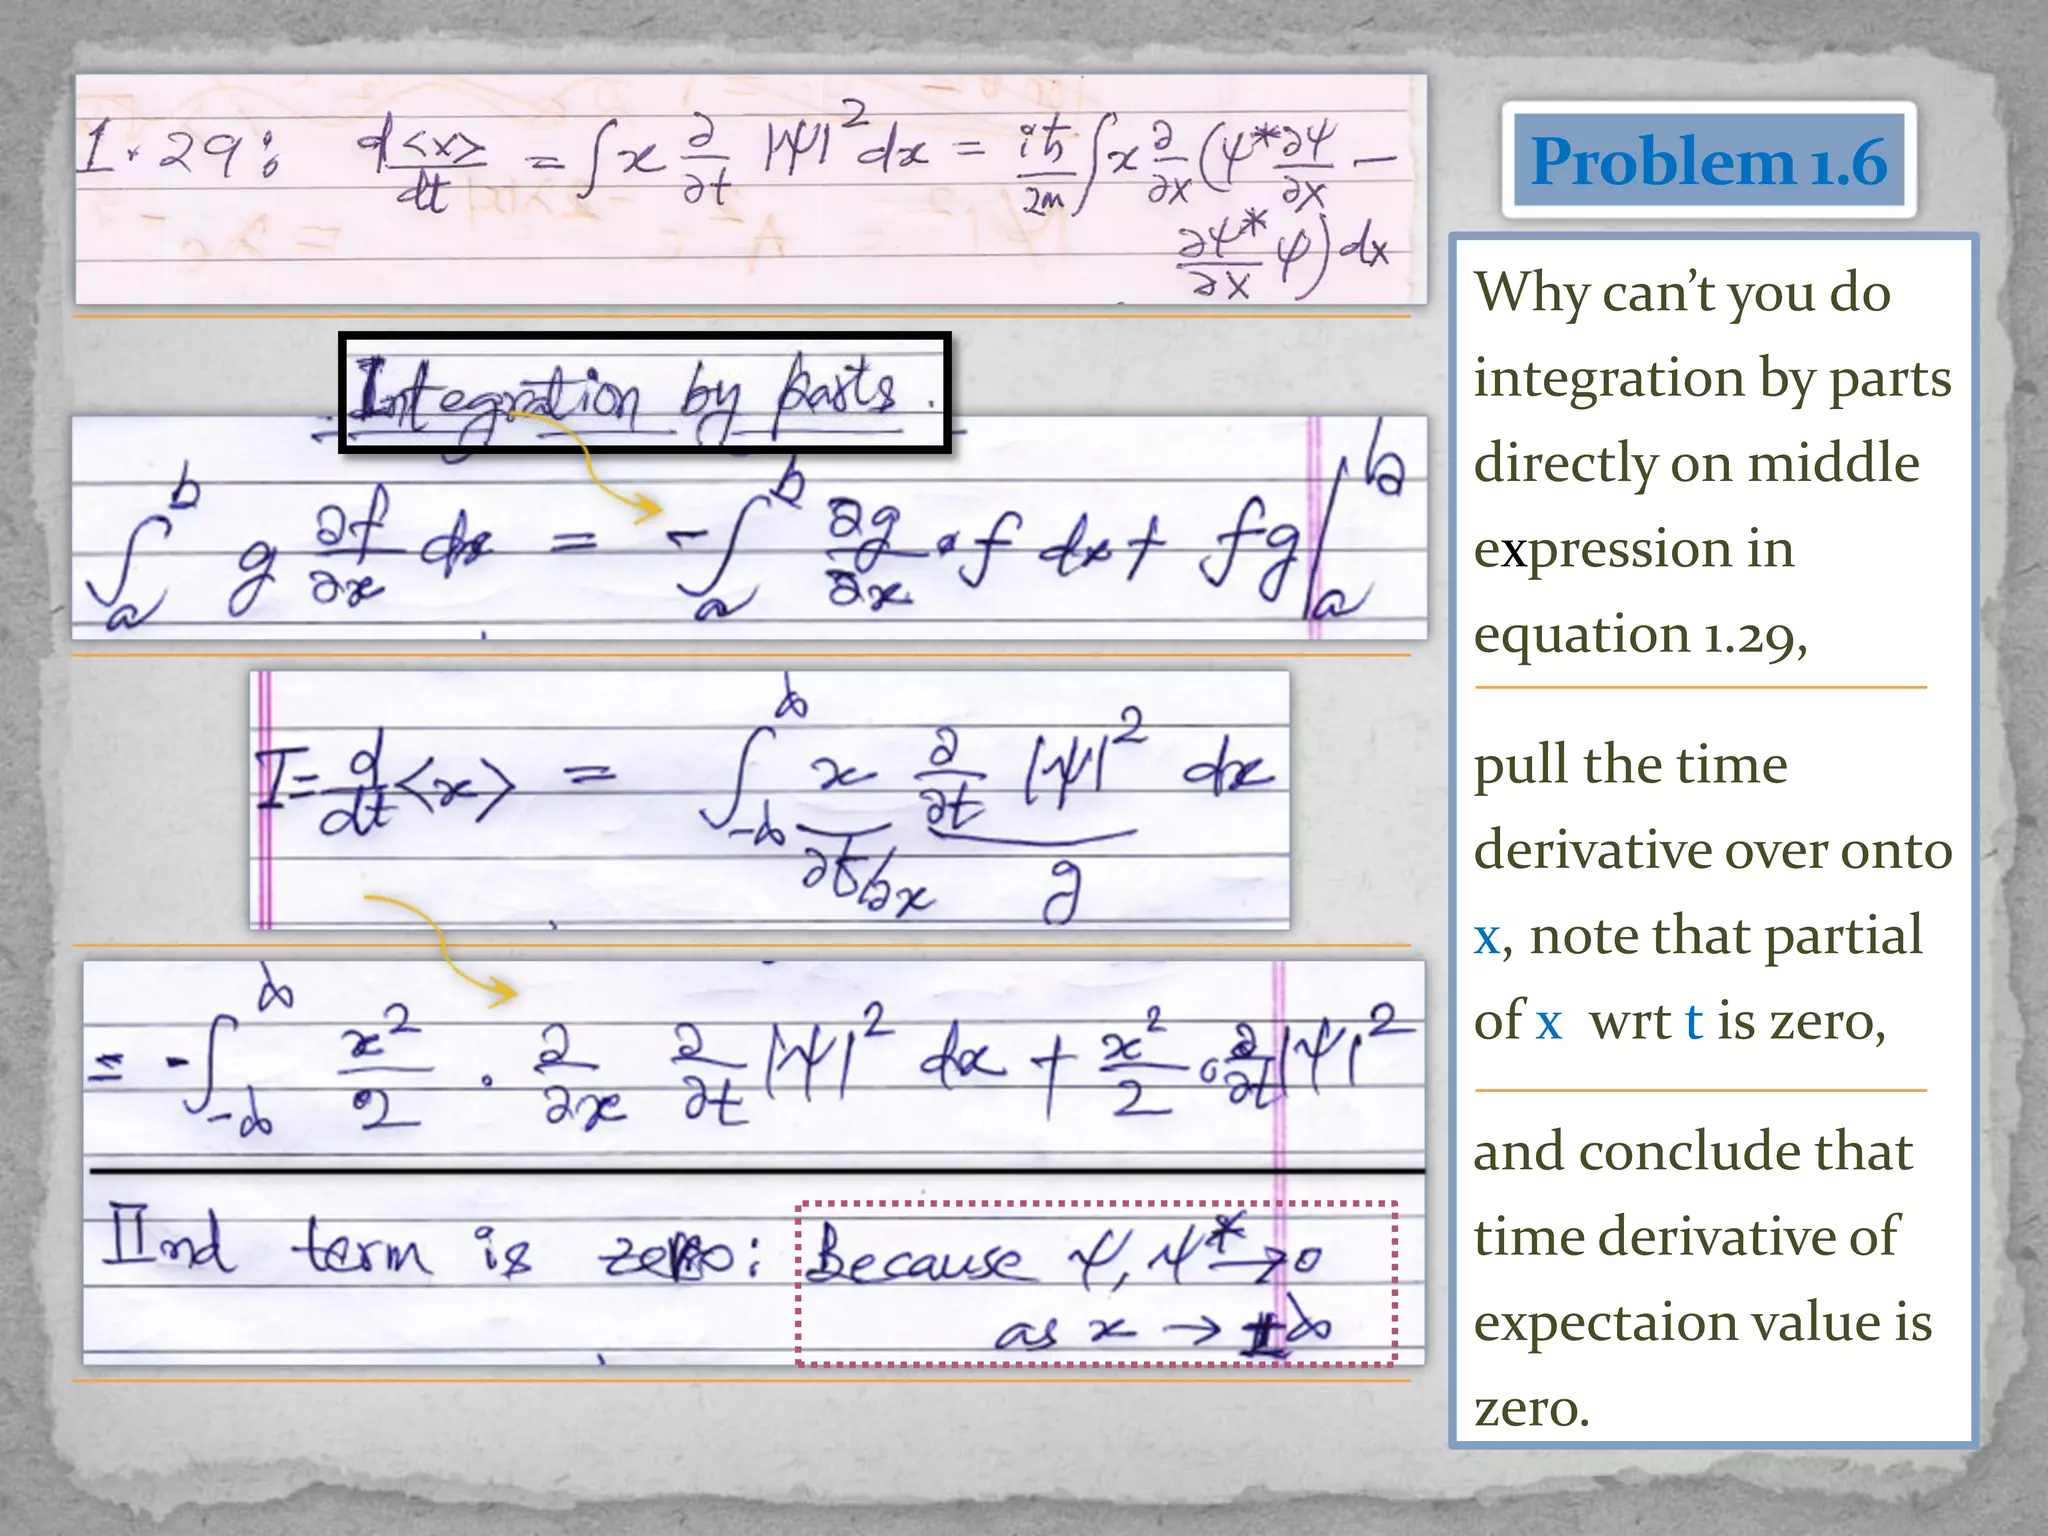 1.29: d<x>/dt = ∫ x ∂/∂t |Ψ|² dx = iħ/2m ∫ x ∂/∂x (Ψ* ∂Ψ/∂x −
∂Ψ*/∂x Ψ) dx
Integration by parts.
∫ₐᵇ g ∂f/∂x dx = -∫ₐᵇ ∂g/∂x · f dx + fg |ₐᵇ
I = d/dt <x> = ∫₋∞^∞ x ∂/∂t |Ψ|² dx
∂f/∂x g
= -∫₋∞^∞ x²/2 · ∂/∂x ∂/∂t |Ψ|² dx + x²/2 · ∂/∂t |Ψ|²
IInd term is zero: Because Ψ, Ψ* → 0
as x → ±∞
Problem 1.6
Why can’t you do
integration by parts
directly on middle
expression in
equation 1.29,
pull the time
derivative over onto
x, note that partial
of x wrt t is zero,
and conclude that
time derivative of
expectaion value is
zero.